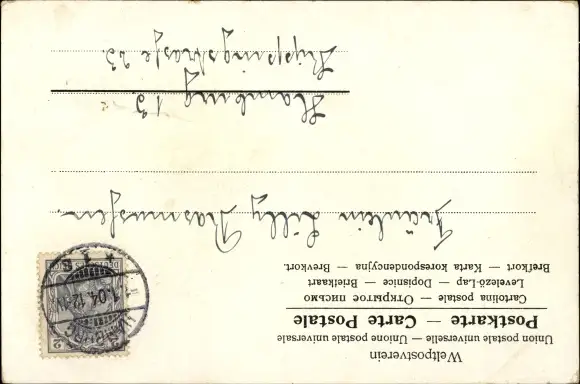 Weltpostverein
Union postale universelle — Unione postale universale
Postkarte — Carte Postale
Cartolina postale — Открытое письмо
Levelező-Lap — Dopisnice — Briefkaart
Brefkort — Karta korespondencyjna — Brevkort.
Fräulein Lilly Rasmussen.
Hamburg 13.
Rippingstrasse 23.
HAMBURG
1.04.12-1N
* 1
2